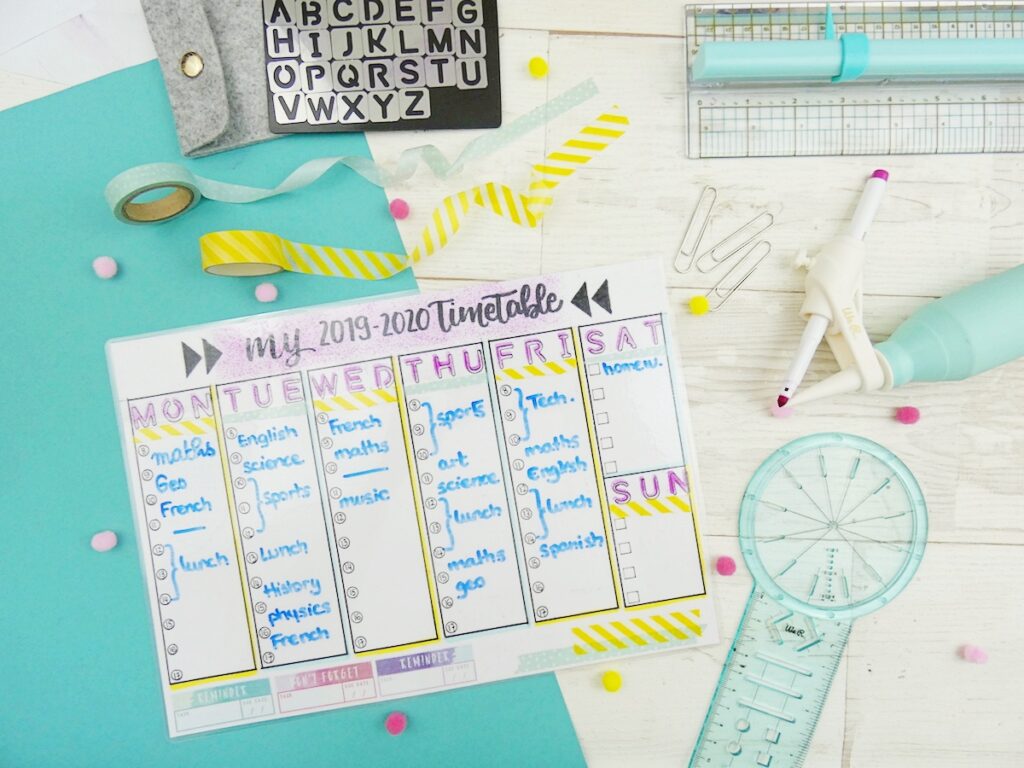 A B C D E F G
H I J K L M N
O P Q R S T U
V W X Y Z
my 2019-2020 Timetable
MON
maths
Geo
French
lunch
TUE
English
science
sports
Lunch
History
physics
French
WED
French
maths
music
THU
sports
art
science
lunch
maths
geo
FRI
Tech.
maths
English
lunch
Spanish
SAT
homew.
SUN
REMINDER
DON'T FORGET
REMINDER
We R